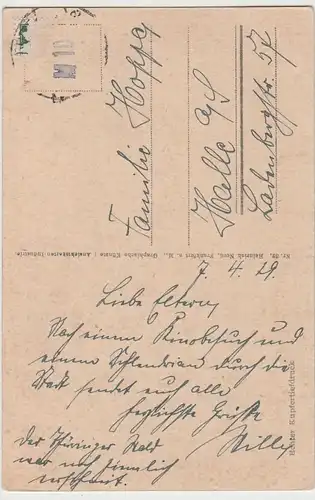 Familie Hoppe
Halle a/S
Ladenbergstr. 57
Nr. 89. Heinrich Nord, Frankfurt a. M., Graphische Künste : Ansichtskarten Industrie.
7. 4. 29.
Liebe Eltern,
Nach einem Kinobesuch und
einem Schlendrian durch die
Stadt sendet euch alle
herzlichste Grüße
Willy
Der Thüringer Wald
war noch ziemlich
verschneit.
Echter Kupfertiefdruck